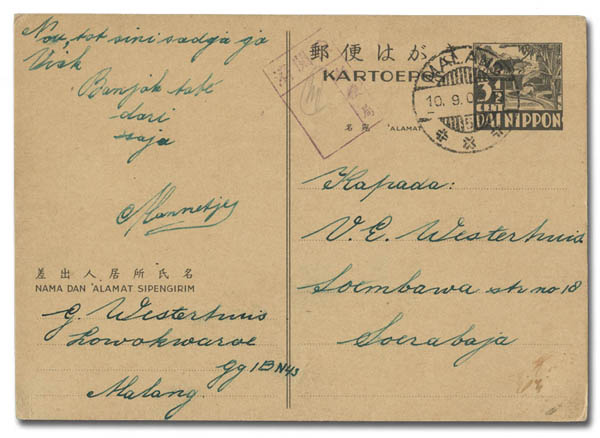 Nou, tot sini sadja ja
Vick
Banjak tabe
dari
saja
Mannetje
差出人居所氏名
NAMA DAN ALAMAT SIPENGIRIM
G. Westerhuis
Lowokwaroe
gg 1B N43
Malang.
郵便はが
KARTOEPOS
名 ALAMAT
MALANG
10. 9. 0
3½
CENT
DAI NIPPON
Kapada:
V. E. Westerhuis
Soembawa str no 18
Soerabaja